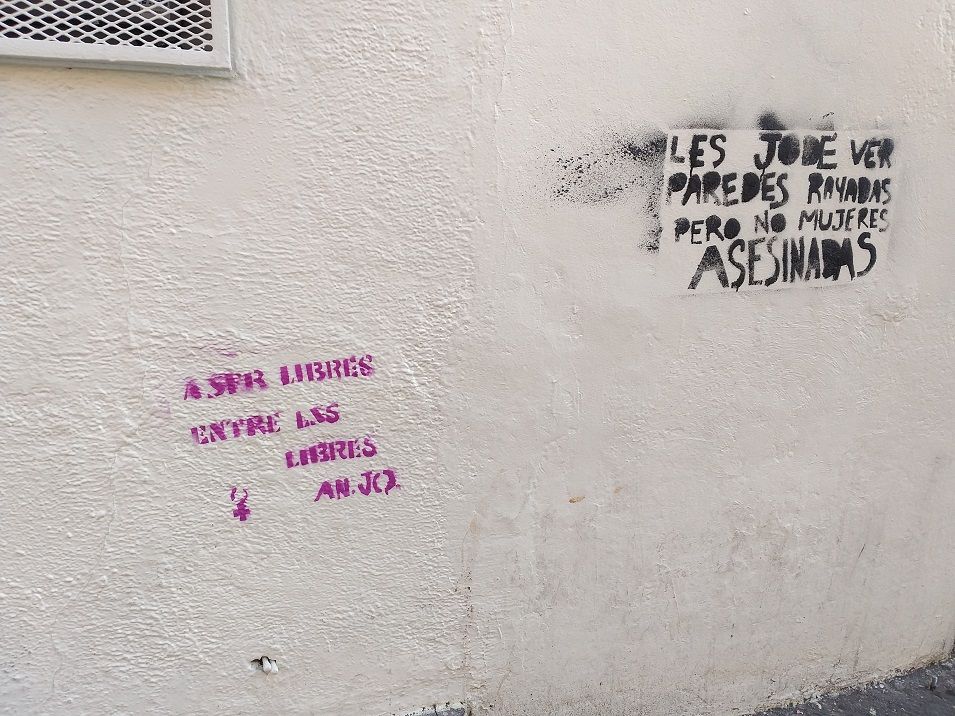 LES JODE VER
PAREDES RAYADAS
PERO NO MUJERES
ASESINADAS
A SER LIBRES
ENTRE LAS
LIBRES
AN.JQ.